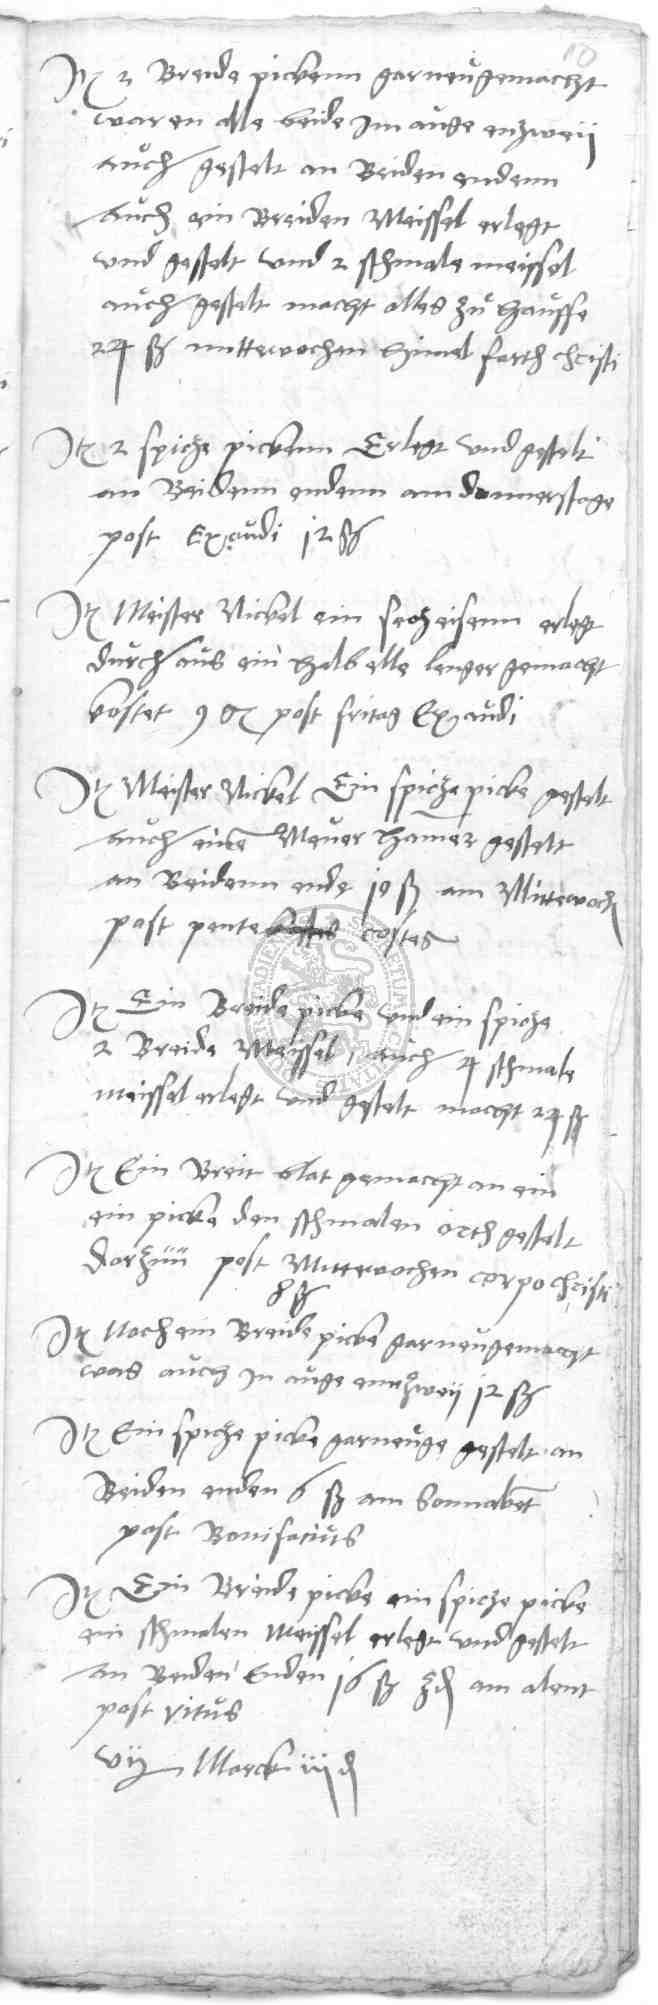 10
Itz 2 Breide pickenn gar neugemachtt
waren alle beide Im auge enzweij
auch gestelt an Beiden endenn
Auch ein Breiden Meissel erlegt
vnd gestelt vnd 2 schmale meissel
auch gestelt macht alles zu hauffe
24 ß mittewochen himel farth christi
Itz 2 spicze pickenn Erlegt vnd gestelt
an Beidenn endenn am donnerstage
post Exaudi 12 ß
Itz Meister Nickel ein secheisenn erlegt
durch aus ein halb elle lenger gemacht
kostet 9 post fritag Exaudi
Itz Meister Nickel Ein spicze picke gestelt
auch eine Meuer hamer gestelt
an Beidenn ende 10 ß am Mittewoch
post pente costes
Itz Ein Breide picke vnd ein spicze
2 Breide Meissel, auch 4 schmale
meissel erlegt vnd gestelt macht 24 ß
Itz Ein Breit blat gemacht an ein
ein picke den schmalen orth gestelt
darzuu post Mittewochen corpo christi
8 ß
Itz Noch ein Breide picke gar neugemacht
was auch In auge entzweij 12 ß
Itz Ein spicze picke gar neuge gestelt an
Beiden enden 6 ß am Sonnabet
post Bonifacius
Itz Ein Breide picke ein spicze picke
ein schmalen Meissel erlegt vnd gestelt
an Beiden Enden 16 ß am abent
post vitus
vij Marck iiij d